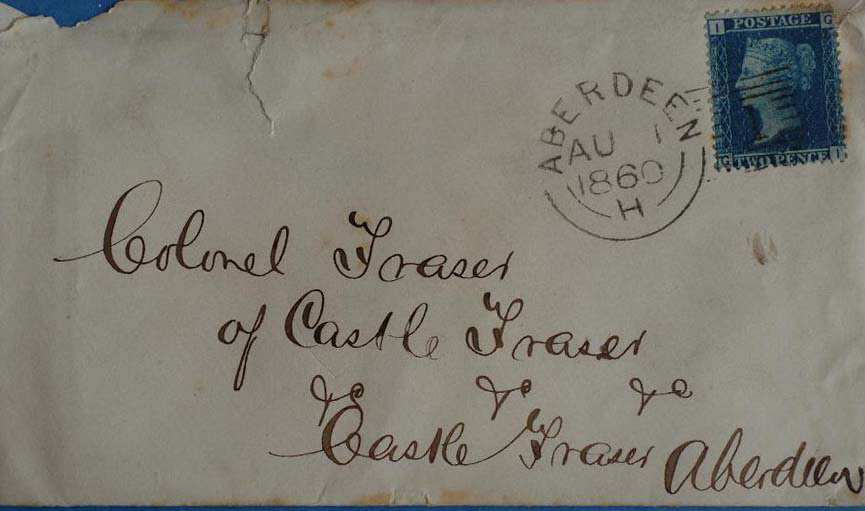 I POSTAGE G
G TWO PENCE I
1
ABERDEEN
AU 1
1860
H
Colonel Fraser
of Castle Fraser
&c &c &c
Castle Fraser Aberdeen